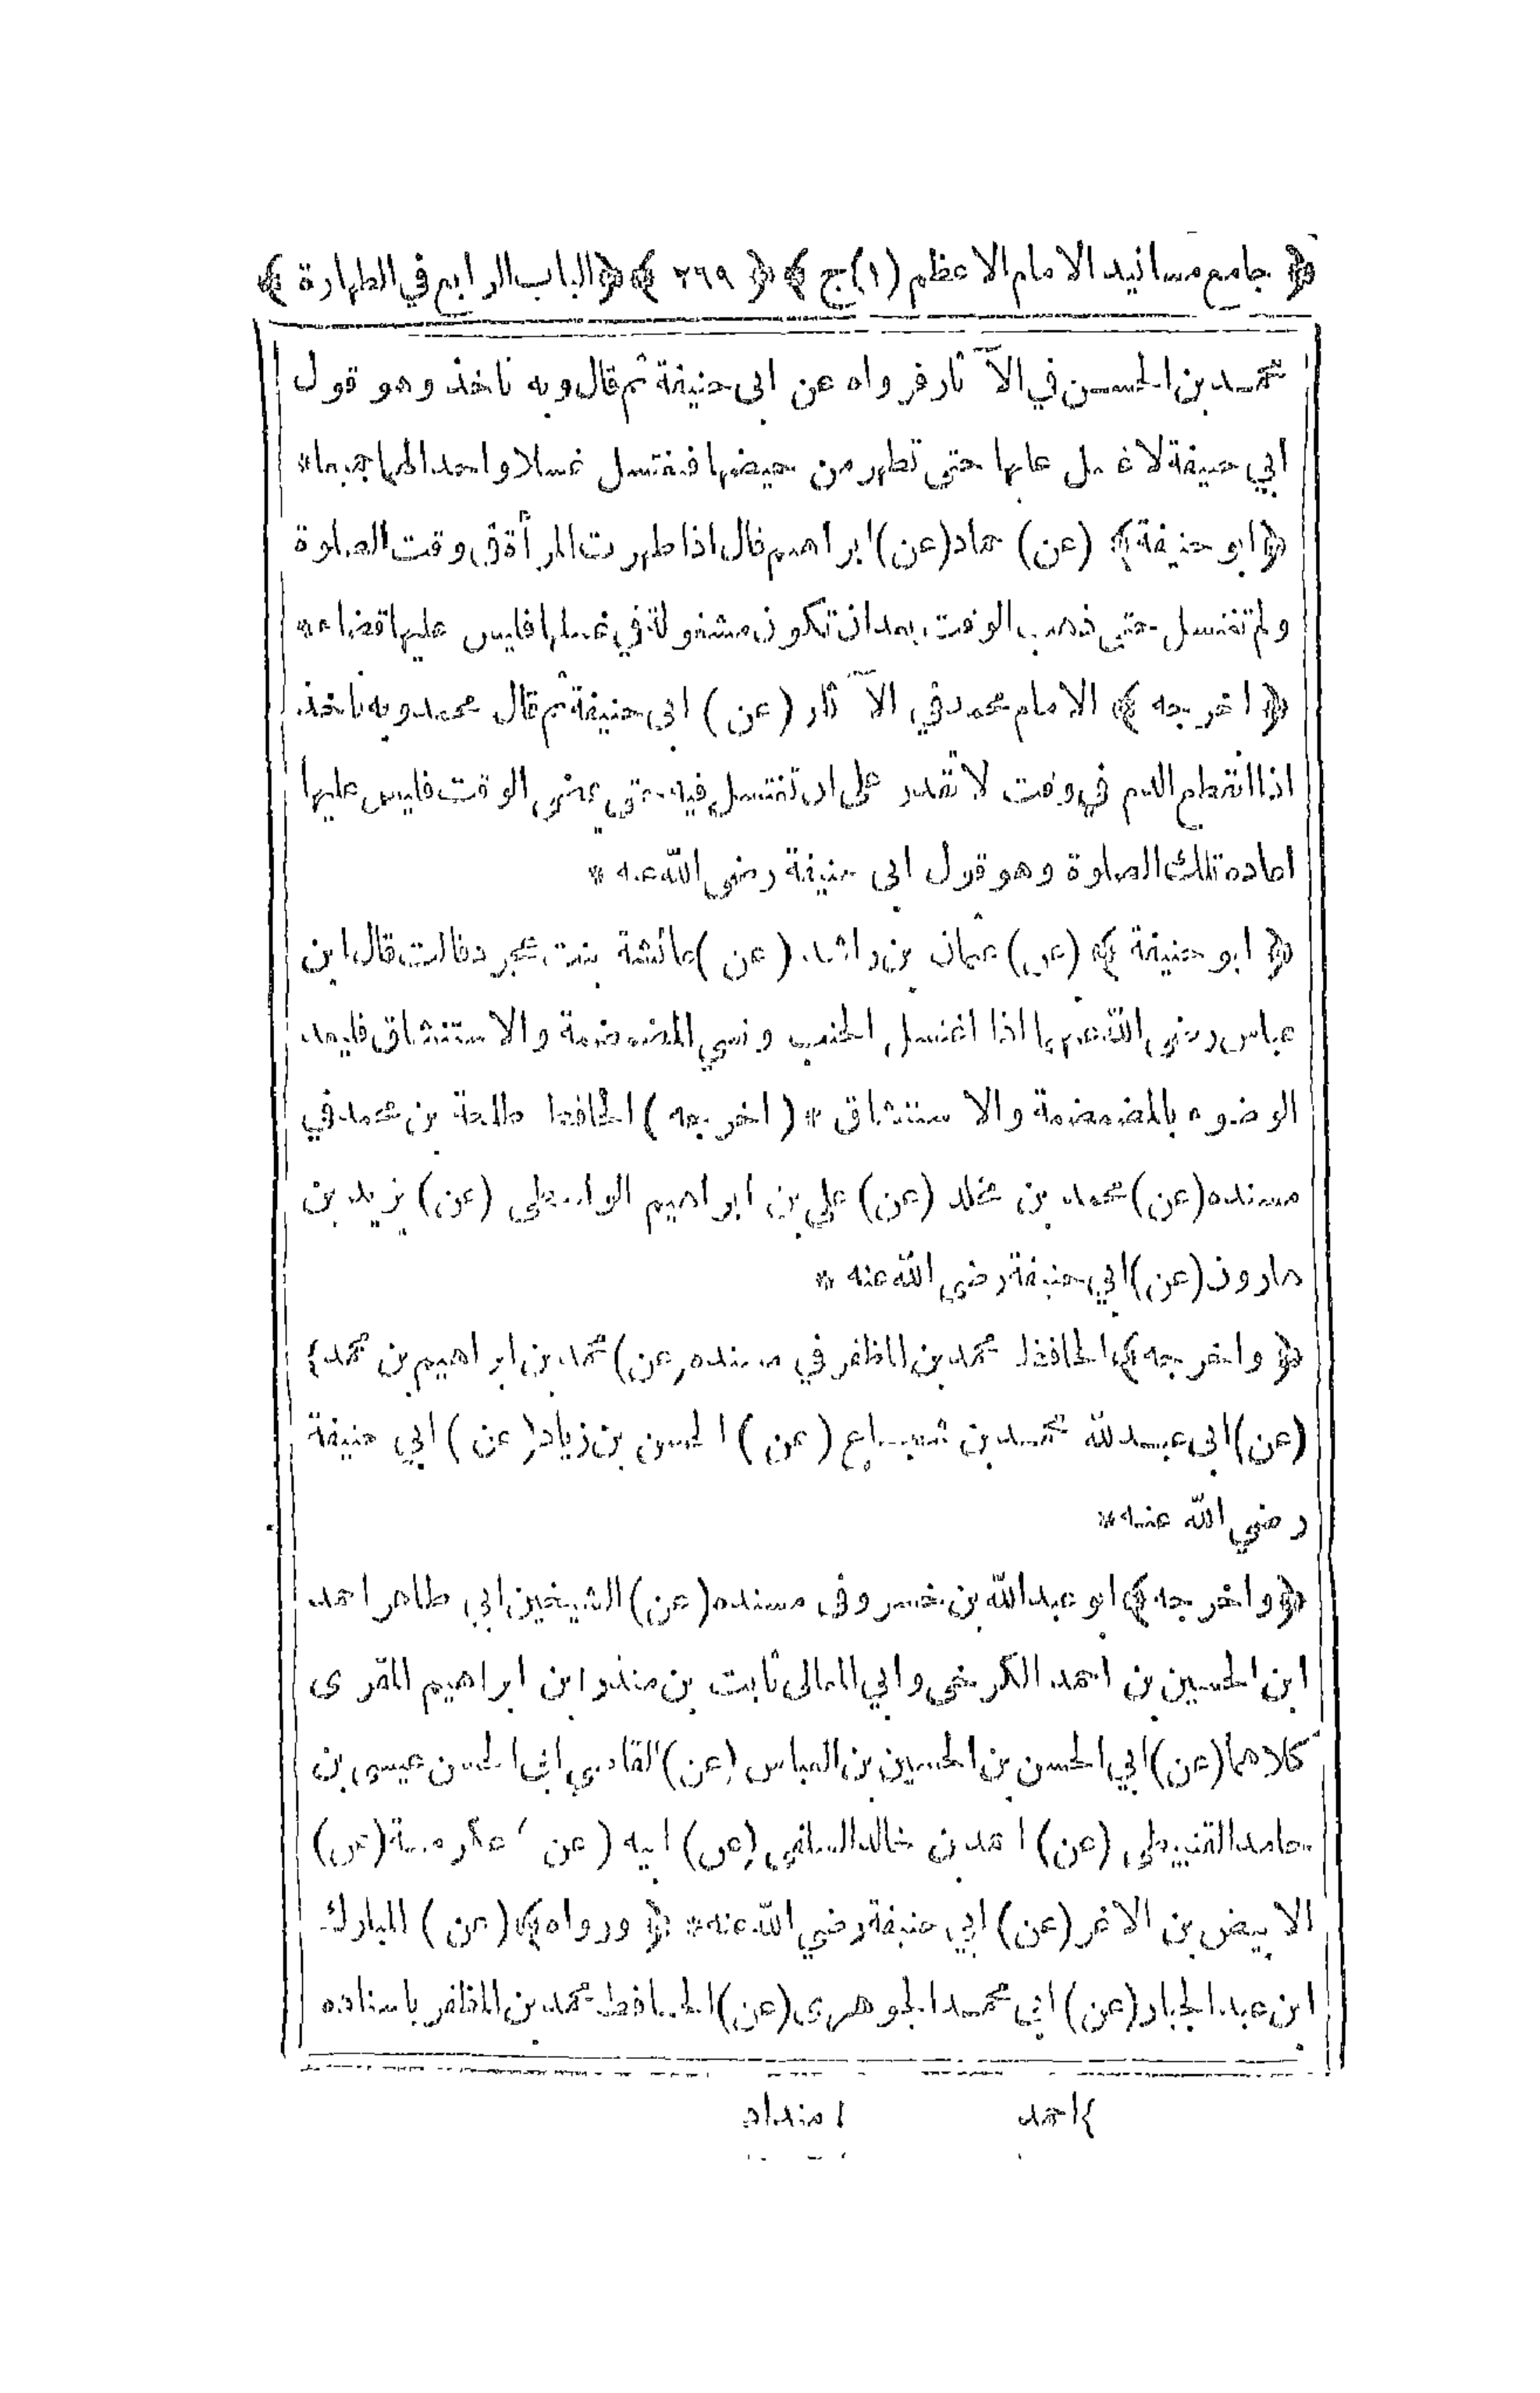 ﴿ جامع مسانيد الامام الاعظم (١) ج ﴾ ﴿ ٢٦٩ ﴾ ﴿ الباب الرابع في الطهارة ﴾
محمد بن الحسن في الآثار فرواه عن ابى حنيفة ثم قال وبه ناخذ وهو قول
ابي حنيفة لا غسل عليها حتى تطهر من حيضها فتغتسل غسلا واحدا لهما جميعا *
﴿ ابو حنيفة ﴾ (عن) حماد (عن) ابراهيم قال اذا طهرت المرأة في وقت الصلوة
ولم تغتسل حتى ذهب الوقت بعد ان تكون مشغولة في غسلها فليس عليها قضاء *
﴿ اخرجه ﴾ الامام محمد في الآثار (عن) ابى حنيفة ثم قال محمد وبه ناخذ
اذا انقطع الدم في وقت لا تقدر على ان تغتسل فيه حتى يمضى الوقت فليس عليها
اعادة تلك الصلوة وهو قول ابى حنيفة رضى الله عنه *
﴿ ابو حنيفة ﴾ (عن) عثمان بن راشد (عن) عائشة بنت عجرد قالت قال ابن
عباس رضى الله عنهما اذا اغتسل الجنب ونسي المضمضة والاستنشاق فليعد
الوضوء بالمضمضة والاستنشاق * (اخرجه) الحافظ طلحة بن محمد في
مسنده (عن) محمد بن مخلد (عن) علي بن ابراهيم الواسطى (عن) يزيد بن
هارون (عن) ابي حنيفة رضى الله عنه *
﴿ واخرجه ﴾ الحافظ محمد بن المظفر في مسنده (عن) محمد بن ابراهيم بن محمد {
(عن) ابى عبد لله محمد بن شجاع (عن) الحسن بن زياد (عن) ابي حنيفة
رضي الله عنه *
﴿ واخرجه ﴾ ابو عبد الله بن خسرو فى مسنده (عن) الشيخين ابي طاهر احمد
ابن الحسين بن احمد الكرخى وابي المعالى ثابت بن منذر ابن ابراهيم المقرى
كلاهما (عن) ابي الحسن بن الحسين بن العباس (عن) القاضي ابى الحسن عيسى بن
حامد القنبيطى (عن) احمد بن خالد السلفى (عن) ابيه (عن) عكرمة (عن)
الابيض بن الاغر (عن) ابي حنيفة رضي الله عنه * ﴿ ورواه ﴾ (عن) المبارك
ابن عبد الجبار (عن) ابي محمد الجوهرى (عن) الحافظ محمد بن المظفر باسناده
{ احمد ١ منداد